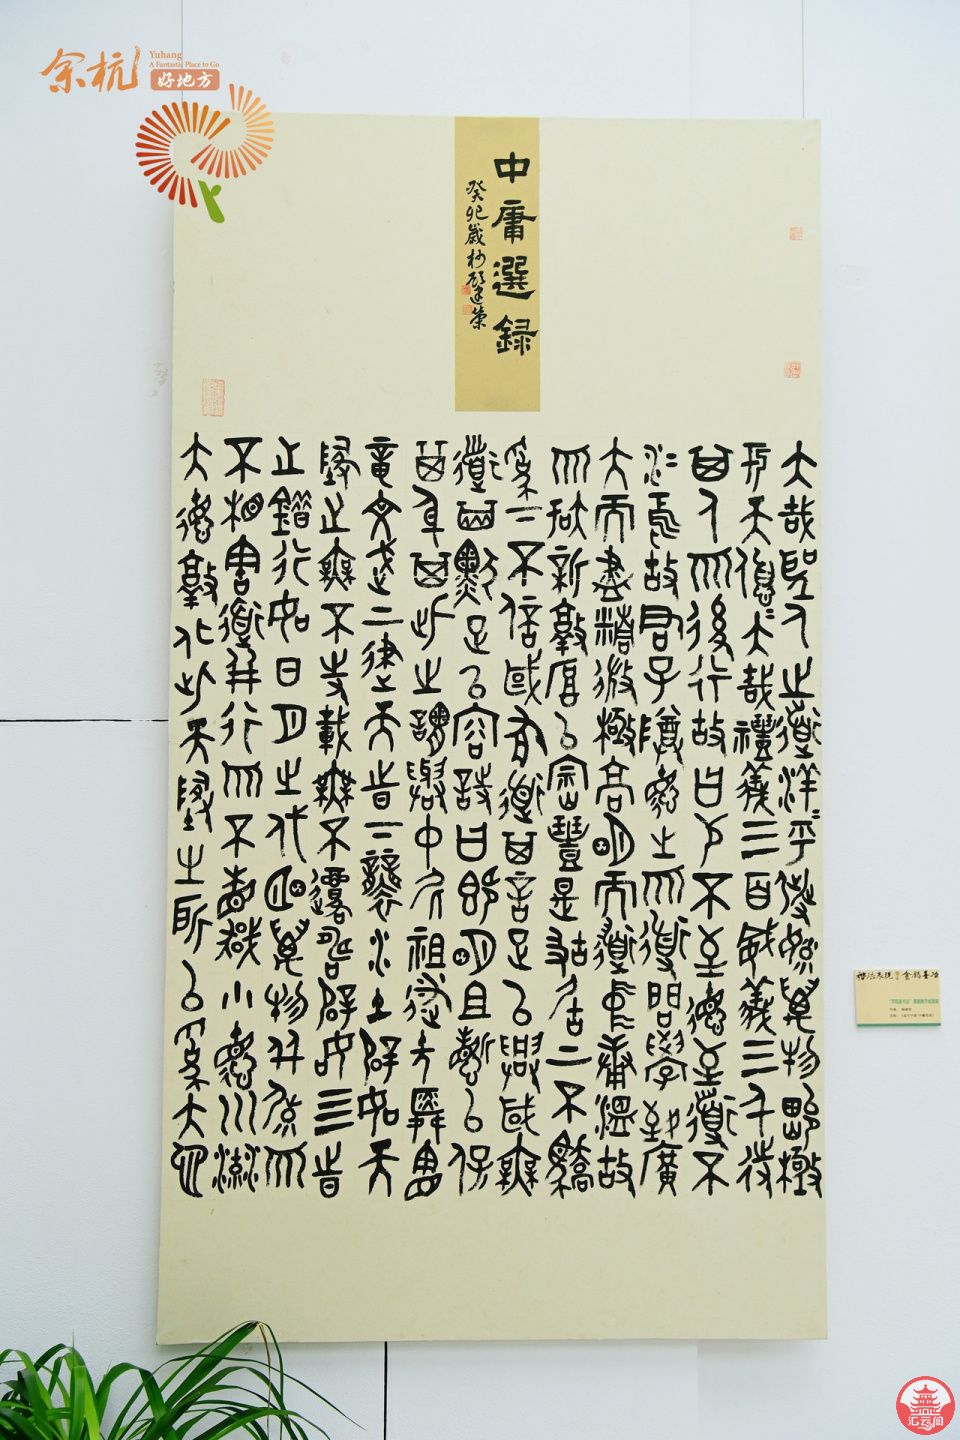 余杭
Yuhang
A Fantastic Place to Go
好地方
中庸選録
癸卯歲杪顧建榮
大哉聖人之道洋〻乎發育萬物峻極
于天優〻大哉禮義三百威義三千待
其人而後行故曰苟不至德至道不
凝焉故君子尊德性而道問學致廣
大而盡精微極高明而道中庸溫故
而知新敦厚以崇禮是故居上不驕
為下不倍國有道其言足以興國無
道其默足以容詩曰既明且哲以保
其身其此之謂與中尼祖述堯舜憲
章文武上律天時下襲水土辟如天
地之無不持載無不覆幬辟如四時
之錯行如日月之代明萬物並育而
不相害道並行而不悖小德川流
大德敦化此天地之所以為大也
汇云阁